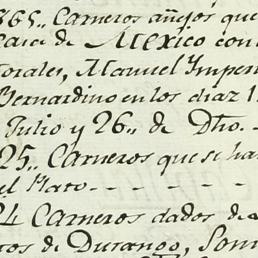 365,, Carneros añejos que
caxa de Mexico con
torales, Manuel Imper
Bernardino en los diaz 1
Julio y 26,, de Dho.
25,, Carneros que se han
el Rato
24 Carneros dados de
tos de Durango, Som